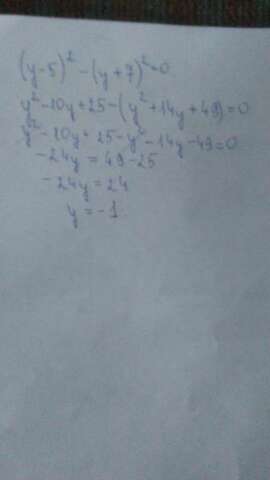 (y-5)² - (y+7)² = 0
y² - 10y + 25 - (y² + 14y + 49) = 0
y² - 10y + 25 - y² - 14y - 49 = 0
-24y = 49 - 25
-24y = 24
y = -1